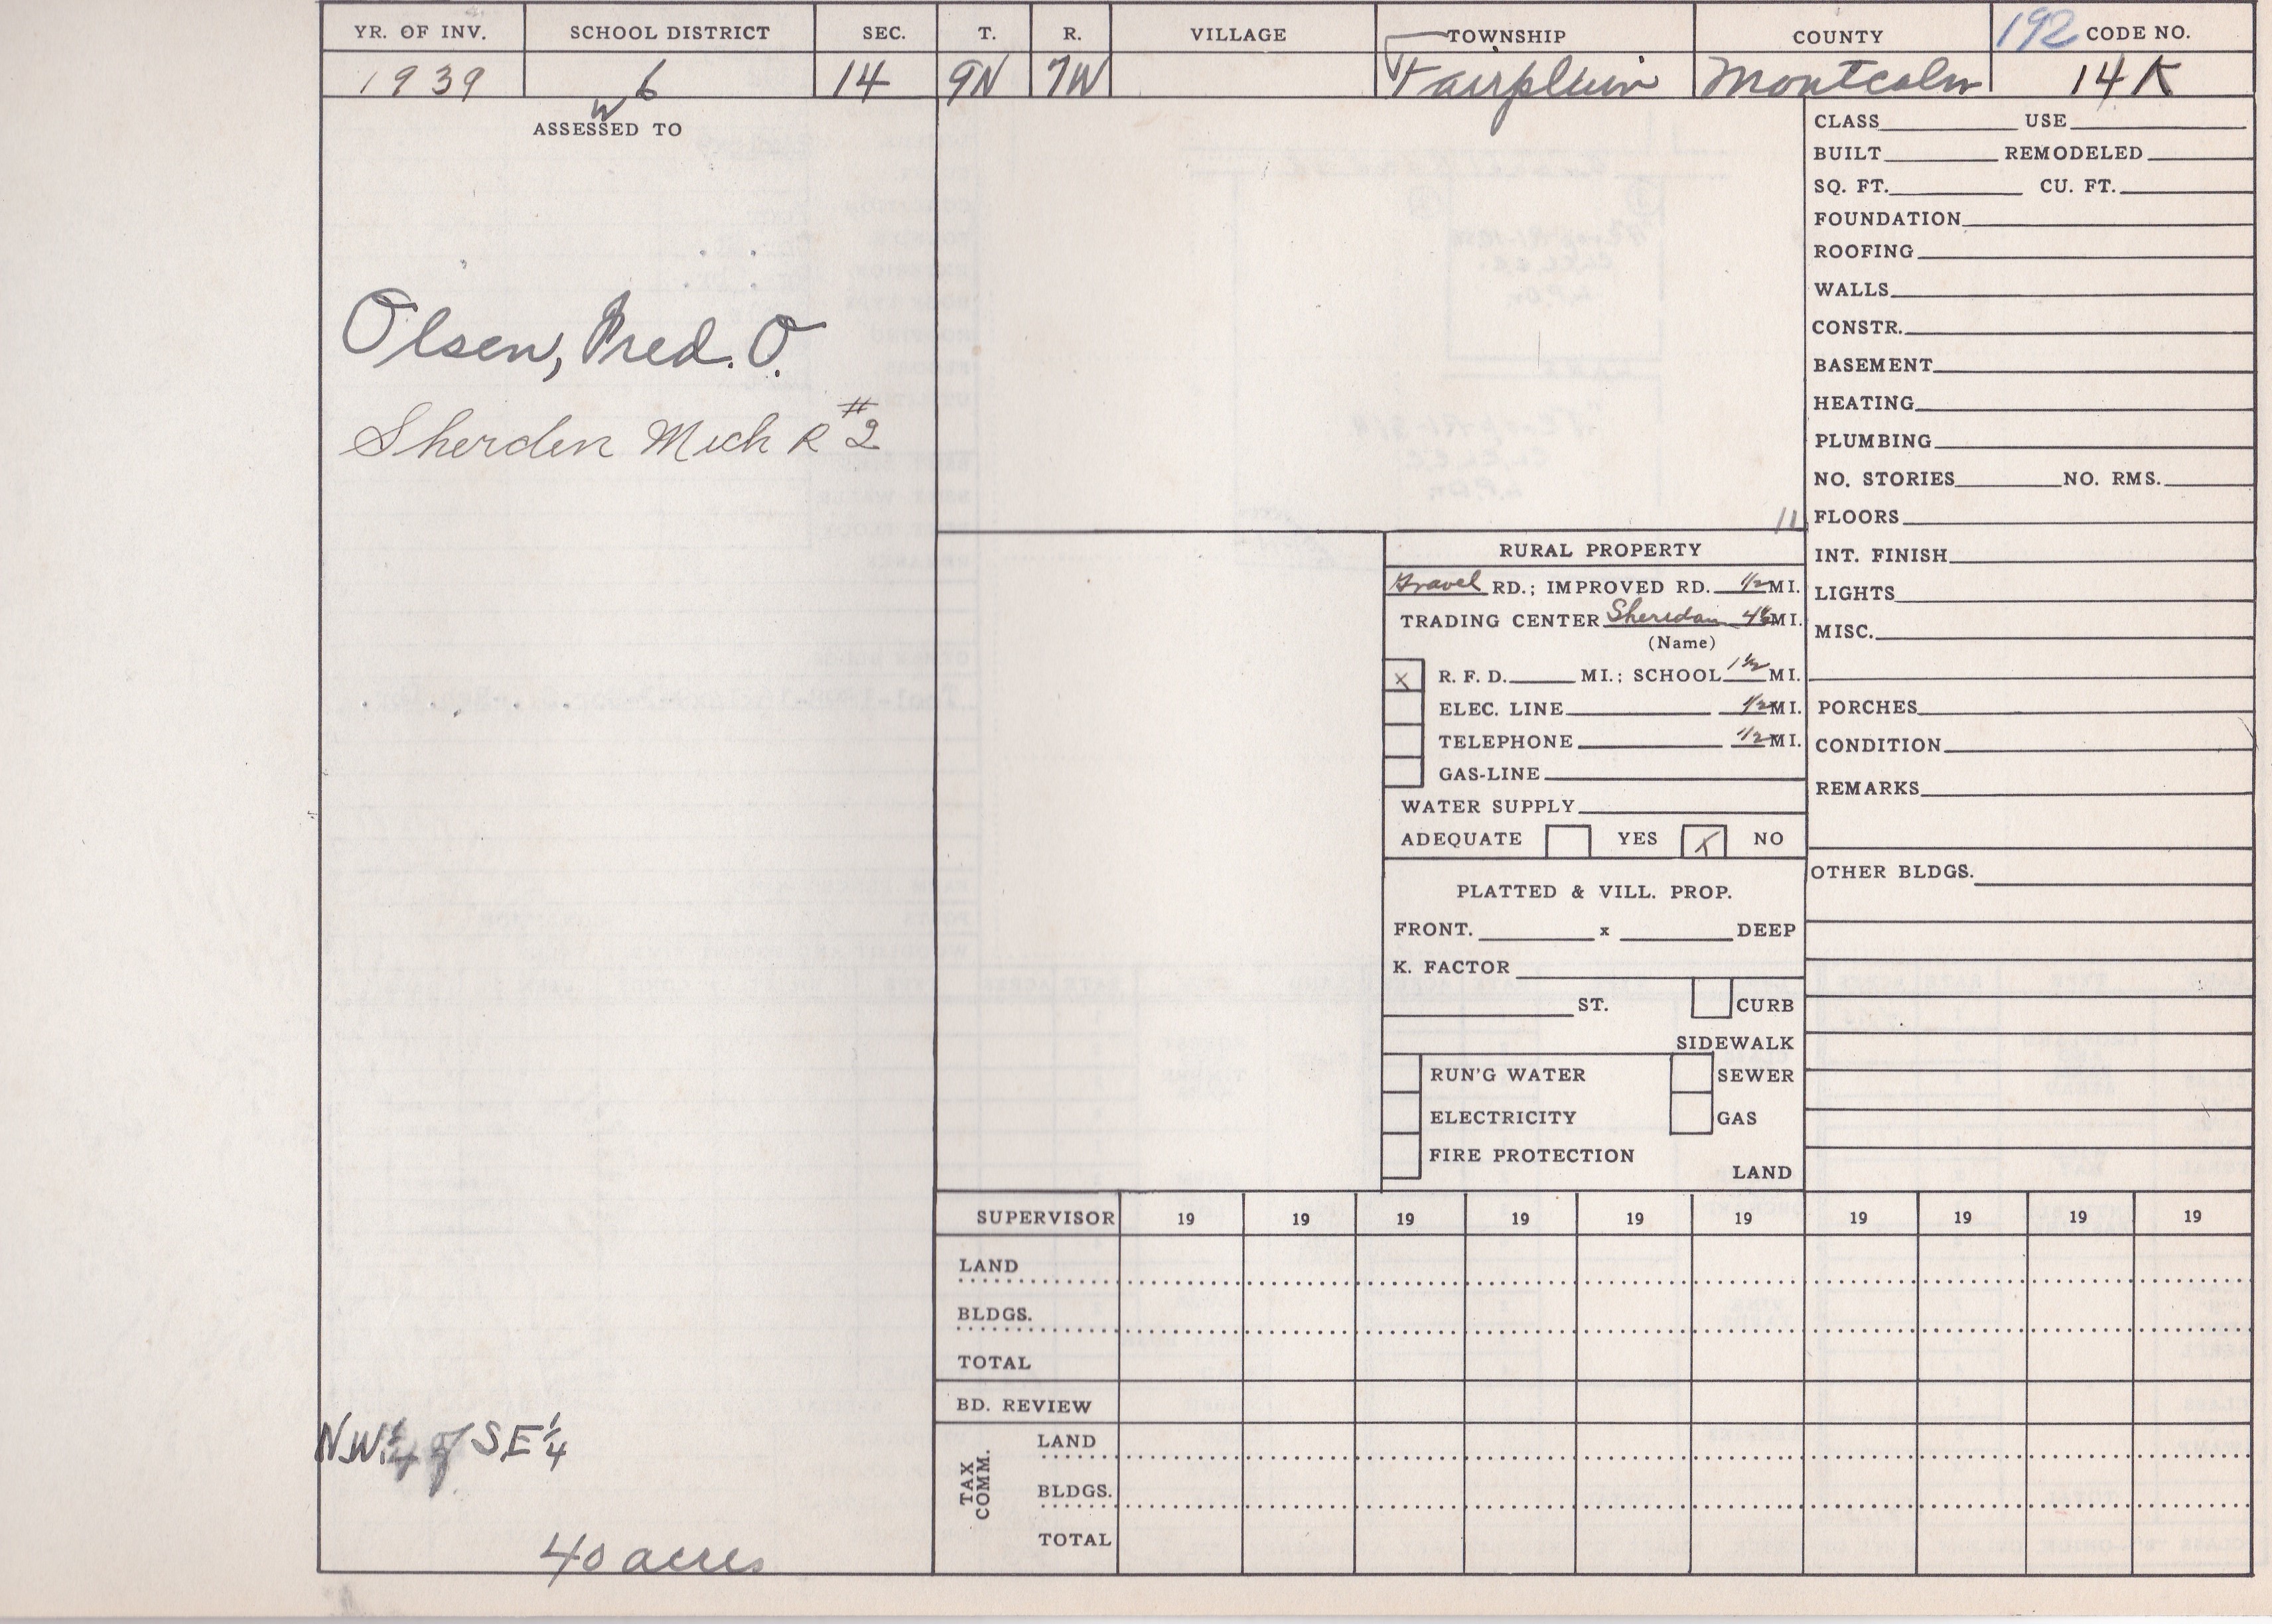 YR. OF INV. SCHOOL DISTRICT SEC. T. R. VILLAGE TOWNSHIP COUNTY 192 CODE NO.
1939 6 14 9N 7W Fairplain Montcalm 14 K
W
ASSESSED TO
Olsen, Fred. O.
Sherden Mich R #2
NW 1/4 of SE 1/4
40 acres
11
RURAL PROPERTY
Gravel RD.; IMPROVED RD. 1/2 MI.
TRADING CENTER Sheridan MI.
(Name)
X R. F. D. MI.; SCHOOL 1 1/2 MI.
ELEC. LINE 1/2 MI.
TELEPHONE 1/2 MI.
GAS-LINE
WATER SUPPLY
ADEQUATE YES X NO
PLATTED & VILL. PROP.
FRONT. x DEEP
K. FACTOR
ST. CURB
SIDEWALK
RUN'G WATER SEWER
ELECTRICITY GAS
FIRE PROTECTION
LAND
CLASS USE
BUILT REMODELED
SQ. FT. CU. FT.
FOUNDATION
ROOFING
WALLS
CONSTR.
BASEMENT
HEATING
PLUMBING
NO. STORIES NO. RMS.
FLOORS
INT. FINISH
LIGHTS
MISC.
PORCHES
CONDITION
REMARKS
OTHER BLDGS.
SUPERVISOR 19 19 19 19 19 19 19 19 19 19
LAND
BLDGS.
TOTAL
BD. REVIEW
TAX COMM.
LAND
BLDGS.
TOTAL